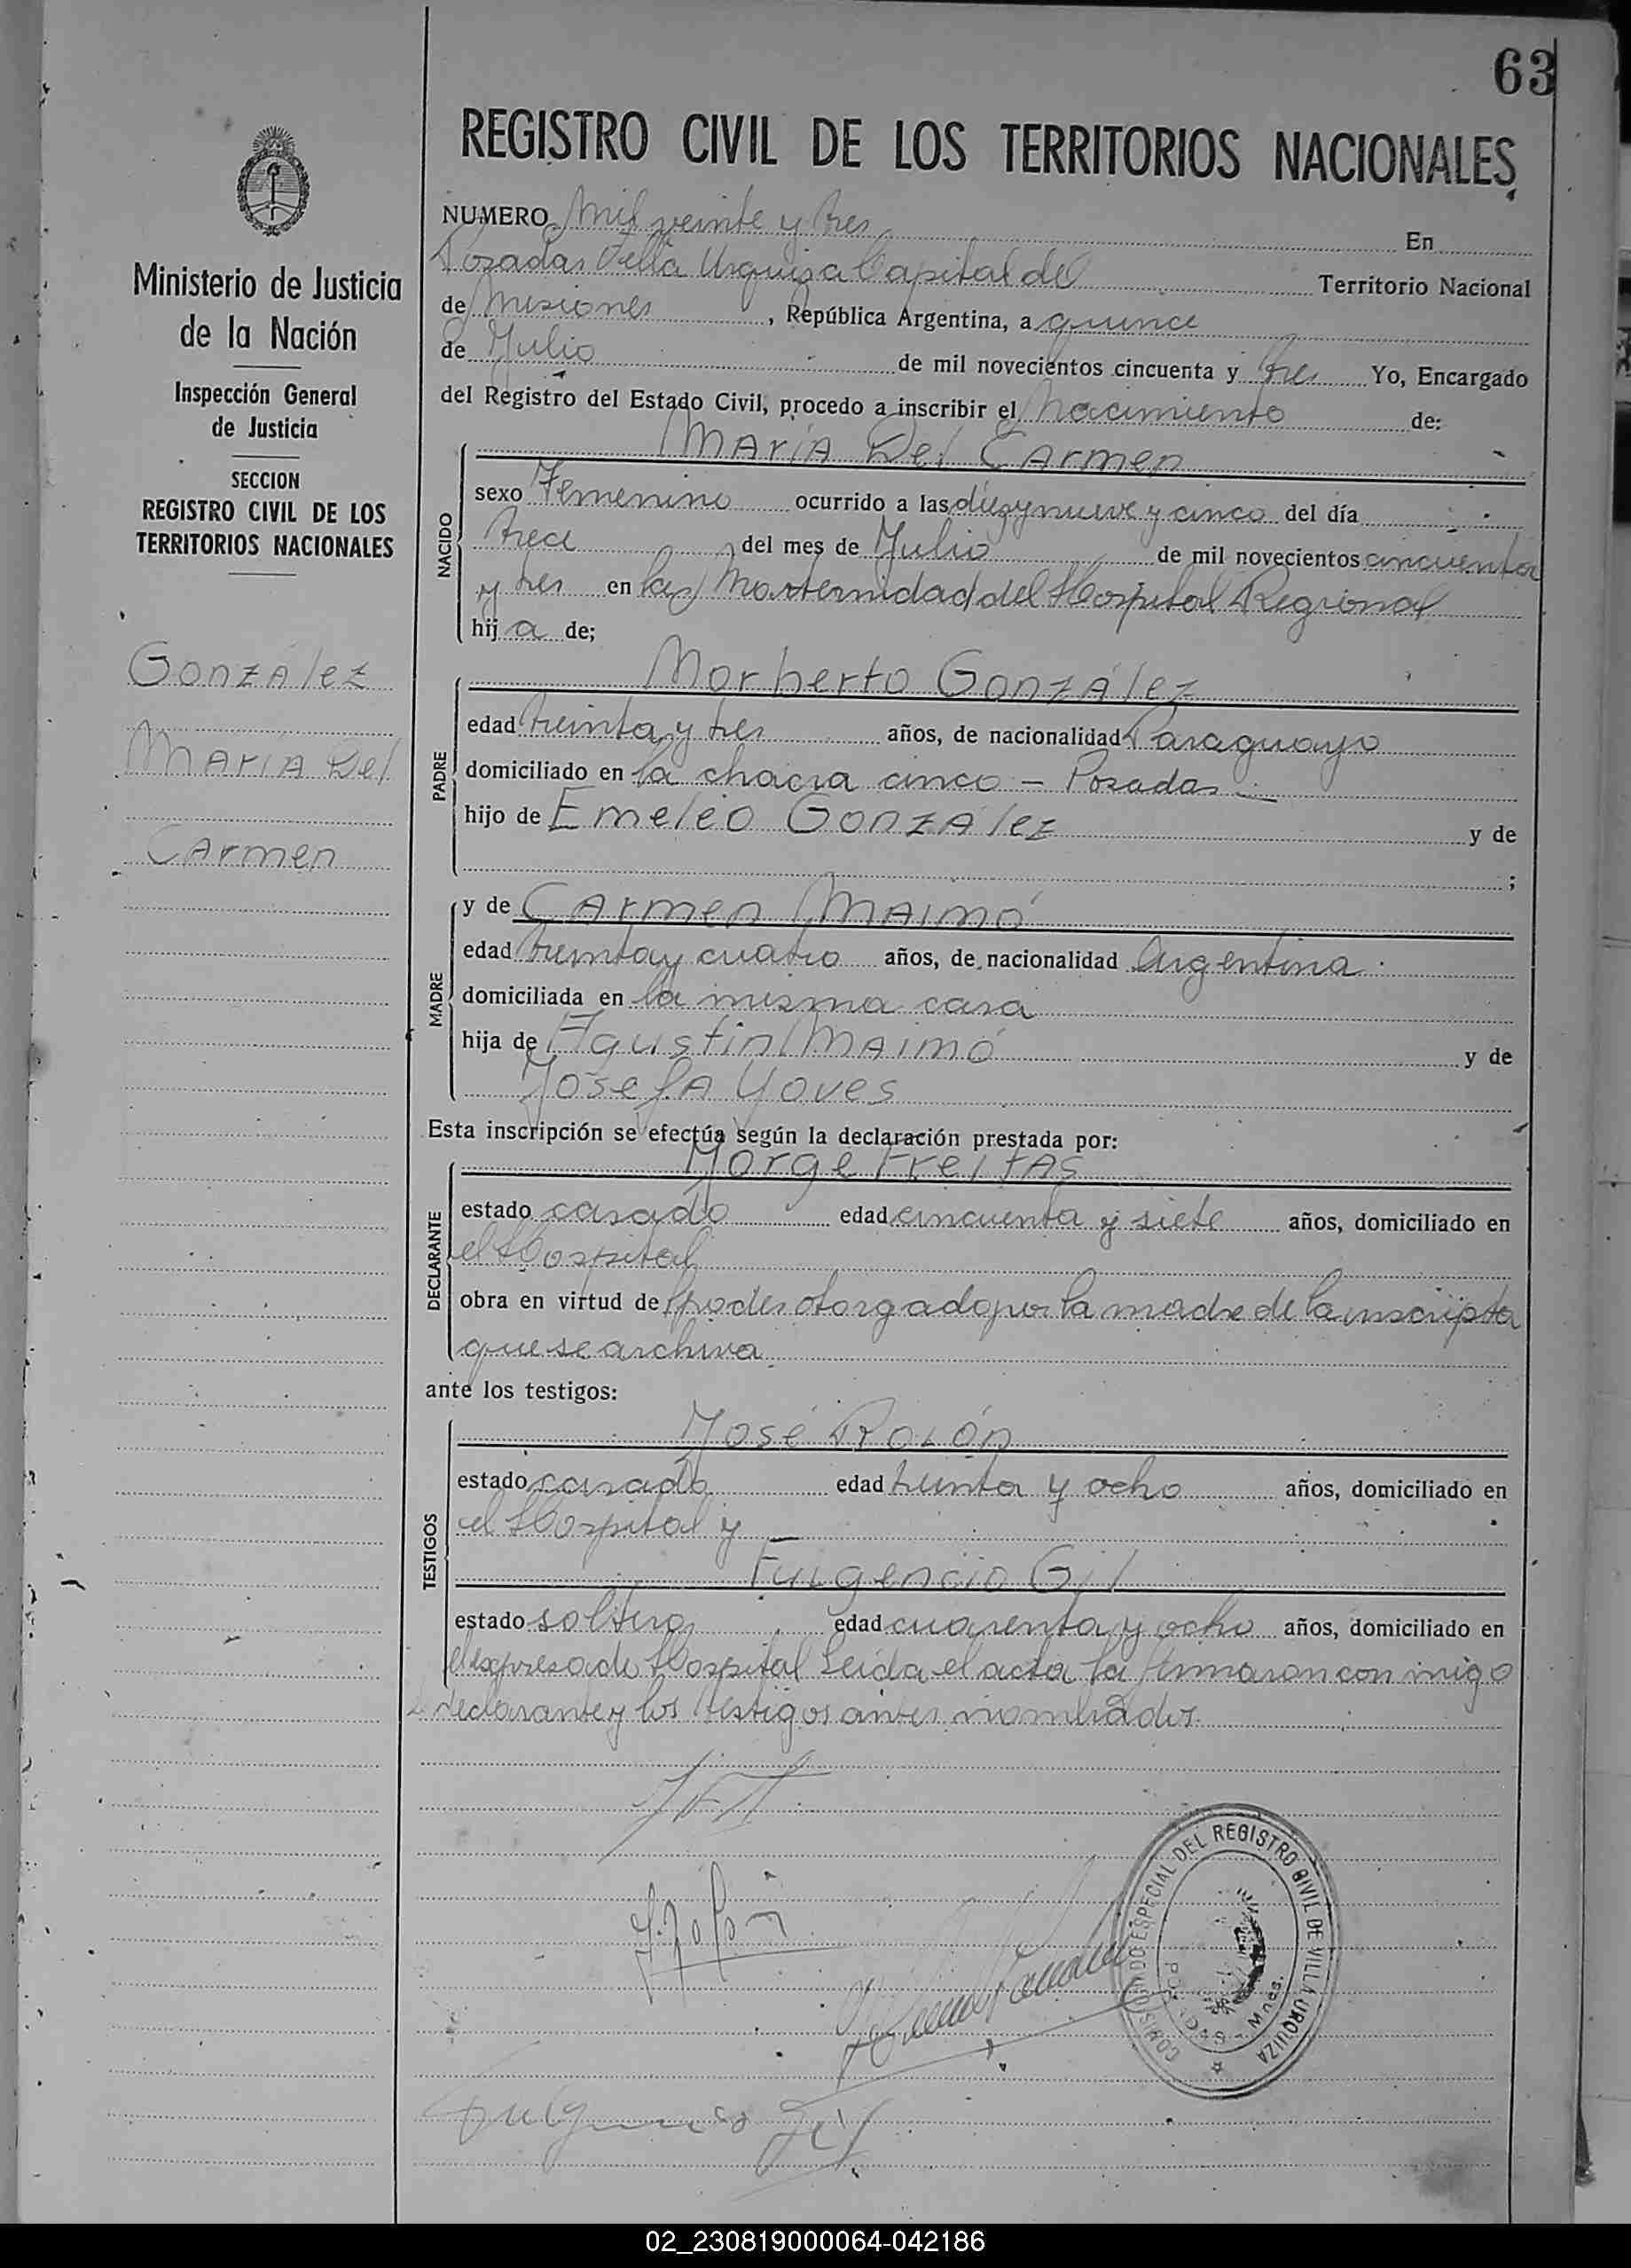 63
REGISTRO CIVIL DE LOS TERRITORIOS NACIONALES
Ministerio de Justicia
de la Nación
Inspección General
de Justicia
SECCION
REGISTRO CIVIL DE LOS
TERRITORIOS NACIONALES
González
María Del
Carmen
NUMERO Mil veinte y tres En
Posadas Villa Urquiza Capital del Territorio Nacional
de Misiones, República Argentina, a quince
de Julio de mil novecientos cincuenta y tres Yo, Encargado
del Registro del Estado Civil, procedo a inscribir el Nacimiento de:
NACIDO
María Del Carmen
sexo Femenino ocurrido a las diez y nueve y cinco del día
trece del mes de Julio de mil novecientos cincuenta
y tres en la Maternidad del Hospital Regional
hij a de;
PADRE
Norberto González
edad treinta y tres años, de nacionalidad Paraguayo
domiciliado en la chacra cinco - Posadas
hijo de Emeleo González y de
;
MADRE
y de Carmen Maimó
edad treinta y cuatro años, de nacionalidad Argentina
domiciliada en la misma casa
hija de Agustin Maimó y de
Josefa Yoves
Esta inscripción se efectúa según la declaración prestada por:
DECLARANTE
Jorge Freitas
estado casado edad cincuenta y siete años, domiciliado en
el Hospital
obra en virtud del poder otorgado por la madre de la inscripta
que se archiva
ante los testigos:
TESTIGOS
José Rolón
estado casado edad treinta y ocho años, domiciliado en
el Hospital y
Fulgencio Gil
estado soltero edad cuarenta y ocho años, domiciliado en
el expresado Hospital Leída el acta la firmaron conmigo
declarante y los testigos antes nombrados
J. Rolón
Fulgencio Gil
COMISIONADO ESPECIAL DEL REGISTRO CIVIL DE VILLA URQUIZA
POSADAS - Mnes.
02_230819000064-042186